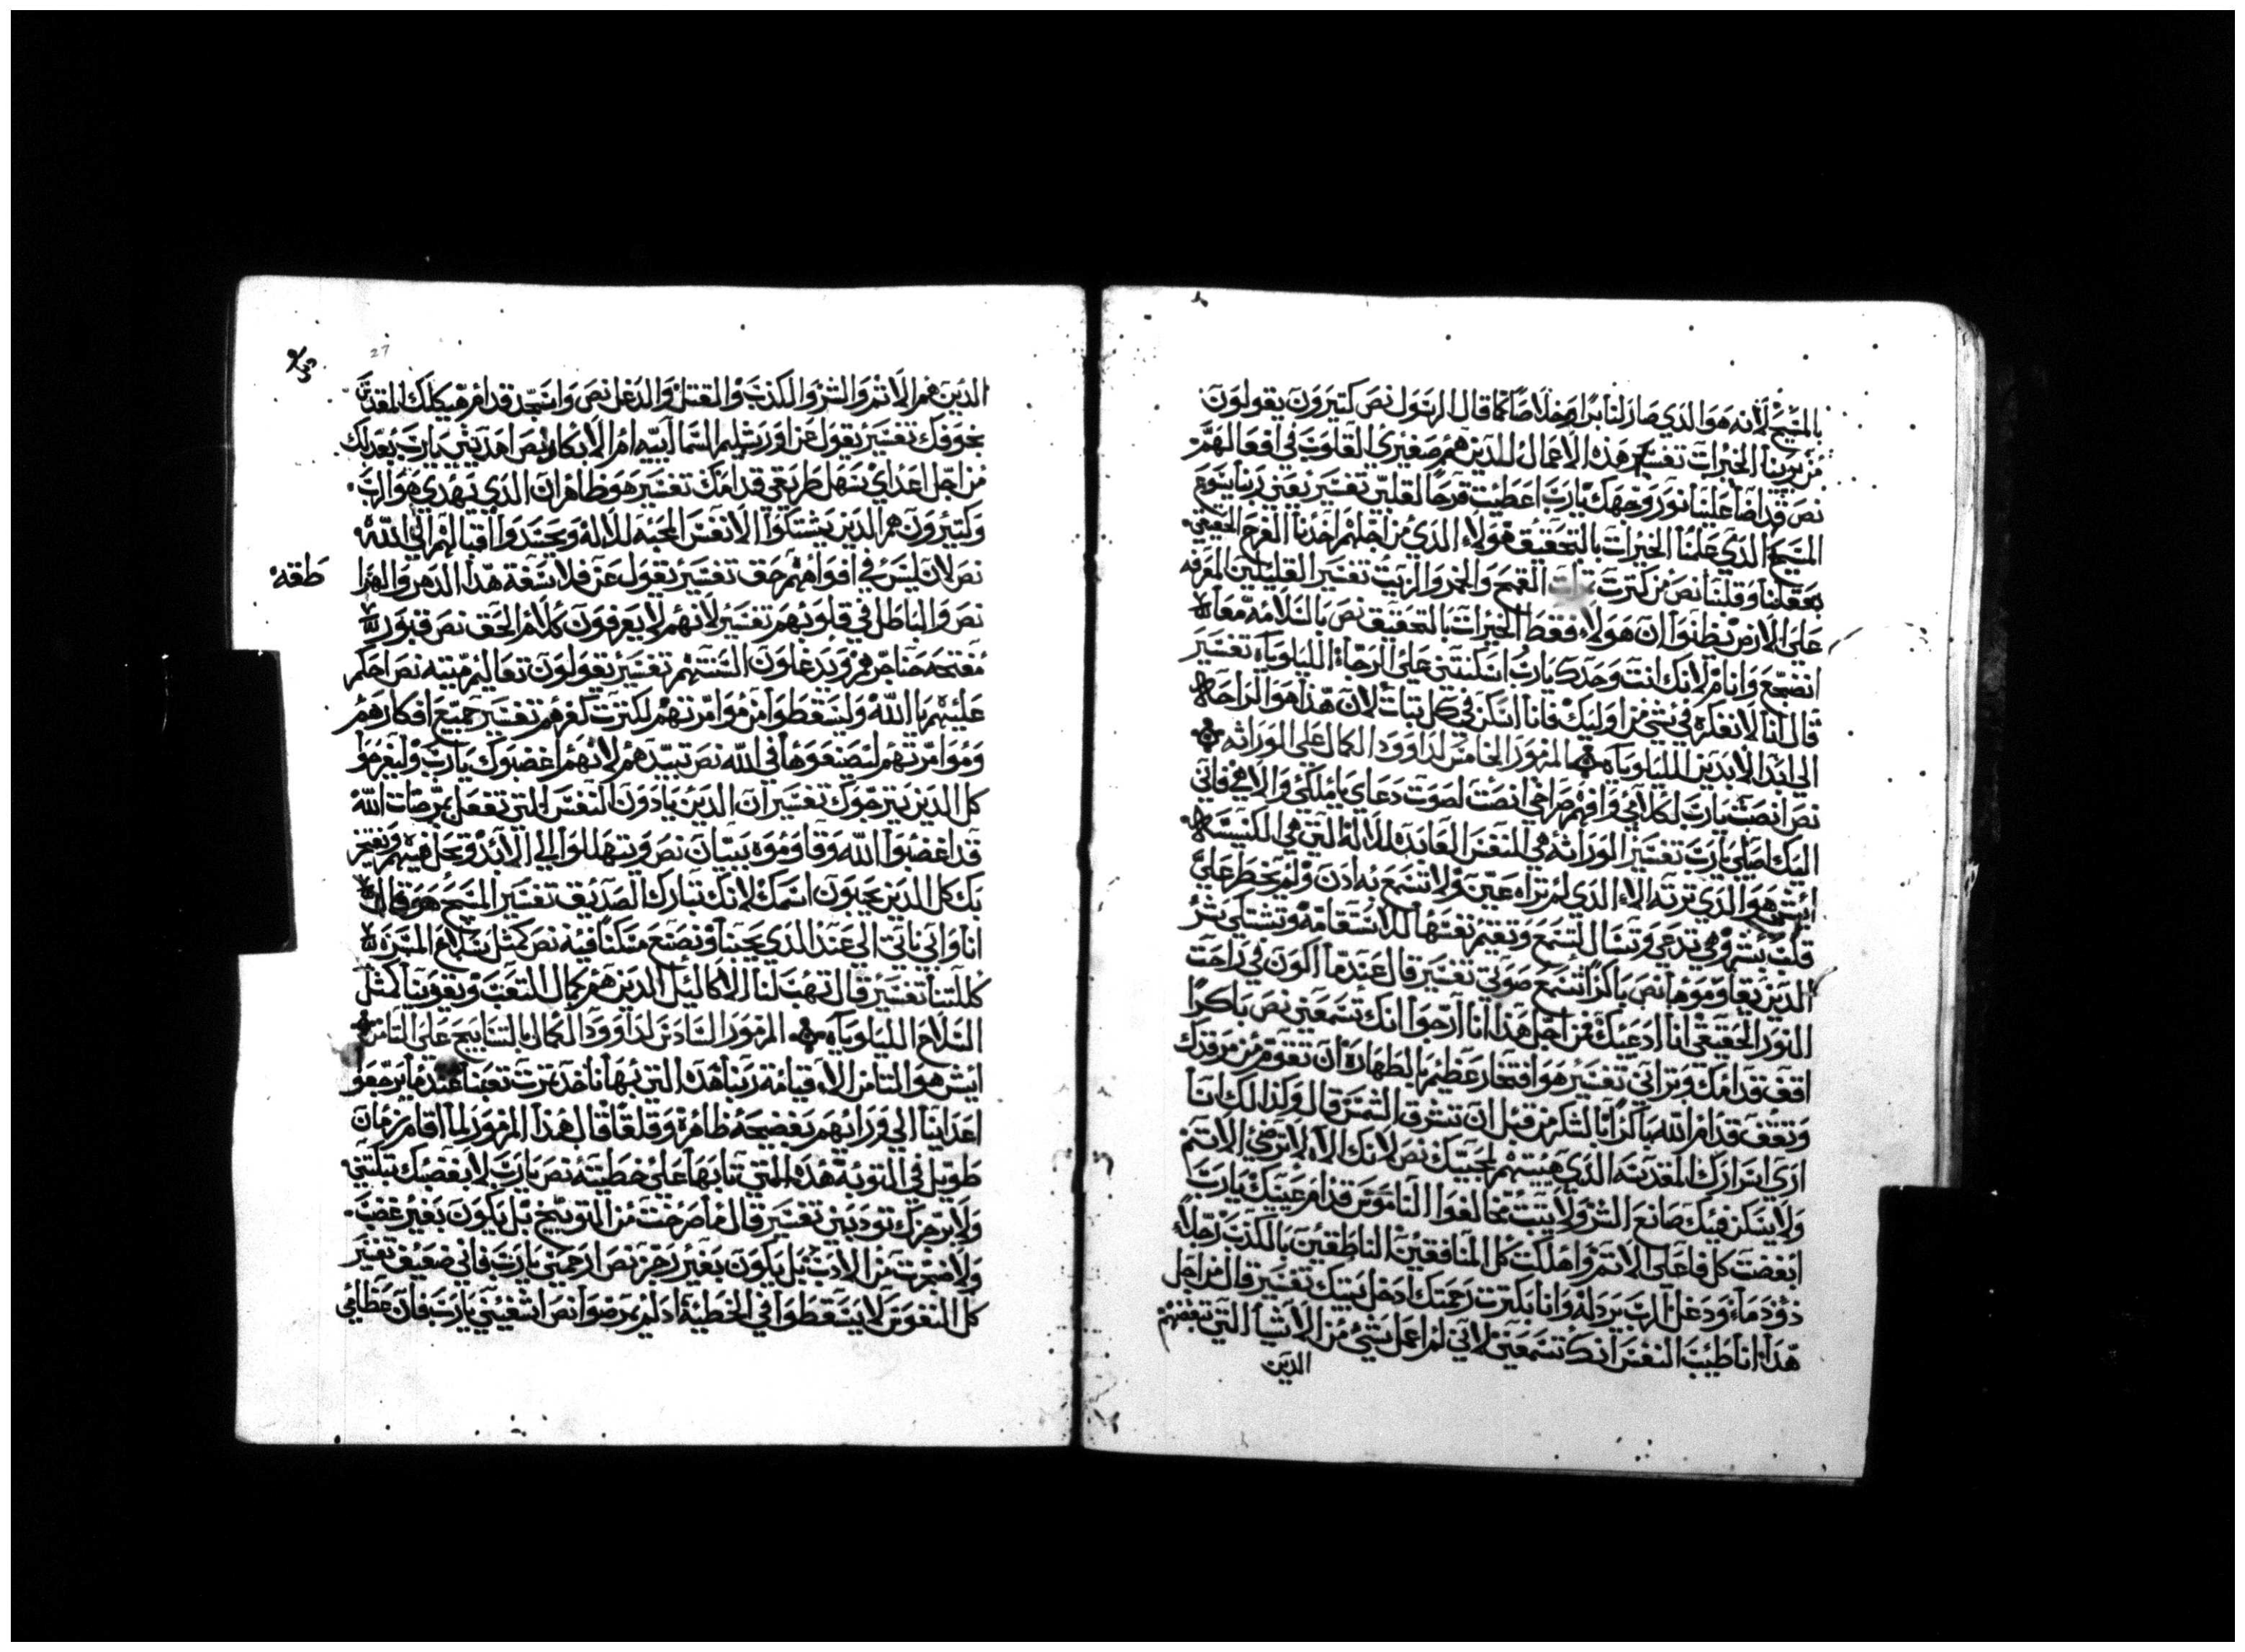 بالمسيح لانه هو الذي صار لنا برا وخلاصا كما قال الرسول نص كتيرون يقولون
من يرينا الخيرات تفسير هذه الاعمال للدين هم صغيري القلوب في افعالهم
نص قد اضا علينا نور وجهك يارب اعطيت فرحا لقلبي تفسير يعني ربنا يسوع
المسيح الذي علمنا الخيرات بالتحقيق هولاء الدي من اجلهم اخدنا الفرح الحقيقي
بعقلنا وقلبنا نص من كترت القمح والخمر والزيت تفسير القليلين المعرفه
على الارض يظنوا ان هولاء فقط الخيرات بالتحقيق نص بالسلامه معا
انضجع وانام لانك انت وحدك يارب اسكنتني على الرجاء الليلوياه تفسير
قال لنا لا نفكر في شي من اوليك فانا اسكن في كل تبات لان هدا هو الراحه
الي ابد الابدين الليلوياه المزمور الخامس لداوود الكمال على الوراثه
نص انصت يارب لكلامي وافهم صراخي انصت لصوت دعاي ياملكي والاهي فاني
اليك اصلي يارب تفسير الوراثه هي للنفس العابده للالاه التي هي الكنيسه
ايش هو الدي ترته الا الدي لم تراه عين ولا تسمع به ادن ولم يخطر على
قلب بشر وهي تدعي وتسال لتسمع وتقيم نفسها للاستقامه وتشتكي بشر
الدين يقاوموها نص باكرا تسمع صوتي تفسير قال عندما اكون في راحت
النور الحقيقي انا ادعيك فمن اجل هدا انا ارجوا انك تسمعني نص باكرا
اقف قدامك وتراني تفسير هو افتخار عظيم بالطهارة ان تقوم من مرقدك
وتقف قدام الله باكرا بالشكر من قبل ان تشرق الشمس قال ولدالك انا
اري اسرارك المقدسه الذي هييتهم لمحبتك نص لانك الاه لا ترضي الاتم
ولا يسكن فيك صانع الشر ولا يتبت مخالفوا الناموس قدام عينيك يارب
ابغضت كل فاعلي الاتم واهلكت كل المنافقين الناطقين بالكذب رجلا
ذو دماء ودغل الرب يردله وانا بكترت رحمتك ادخل بيتك تفسير قال من اجل
هدا انا طيب النفس انك تسمعني لاني لم اعمل بشئ من الاشيا التي تبغضهم
الدين
27
الدين هم الاثم والشر والكذب والقتل والدغل نص واسجد قدام هيكلك المقدس
بخوفك تفسير يقول عن اورشليم السماييه ام الابكار نص اهديني يارب بعدلك
من اجل اعداي سهل طريقي قدامك تفسير هو ظاهر ان الذي يهدي هو الرب
وكتيرون هم الدين يشتكوا الانفس المحبه للالاه ويحسدوا اقبالهم الى الله
نص لان ليس في افواههم حق تفسير يقول عن فلاسفة هدا الدهر والهرا
طقه
نص والباطل في قلوبهم تفسير لانهم لا يعرفون كلام الحق نص قبور
مفتحه حناجرهم ويدغلون السنتهم تفسير يقولون تعاليم ميته نص احكم
عليهم يا الله وليسقطوا من موامرتهم لكترت كفرهم تفسير جميع افكارهم
وموامرتهم ليصنعوها في الله نص تبيدهم لانهم اغضبوك يارب وليفرحوا
كل الدين يترجوك تفسير ان الدين يادون النفس التي تفعل بمرضات الله
قد اغضبوا الله وقاوموه ببيان نص ويتهللوا الي الابد وتحل فيهم ويفتخر
بك كل الدين يحبون اسمك لانك تبارك الصديق تفسير المسيح هو قال
انا وابي ناتي الي عند الدي يحبنا ونصنع مسكنا فيه نص كمثل سلاح المسرة
كللتنا تفسير قال تهب لنا الاكاليل الدين هم كمال للتعب وتقوينا كمثل
السلاح الليلوياه المزمور السادس لداوود الكمال بالتسابيح على التامن
ايش هو التامن الا قيامة ربنا هده التي بها ناخد تمرت تعبنا عندما يرجعوا
اعداينا الي ورايهم بفضيحه ظاهرة وقلقا قال هدا المزمور لما اقام زمان
طويل في التوبه هده التي تابها على خطيته نص يارب لا بغضبك تبكتني
ولا برجزك تودبني تفسير قال ما صرخت من التوبيخ بل يكون بغير غضب
ولا ضجرت من الادب بل يكون بغير رجز نص ارحمني يارب فاني ضعيف تفسير
كل النفوس لا يسقطوا في الخطية اد لم يمرضوا نص اشفيني يارب فان عظامي